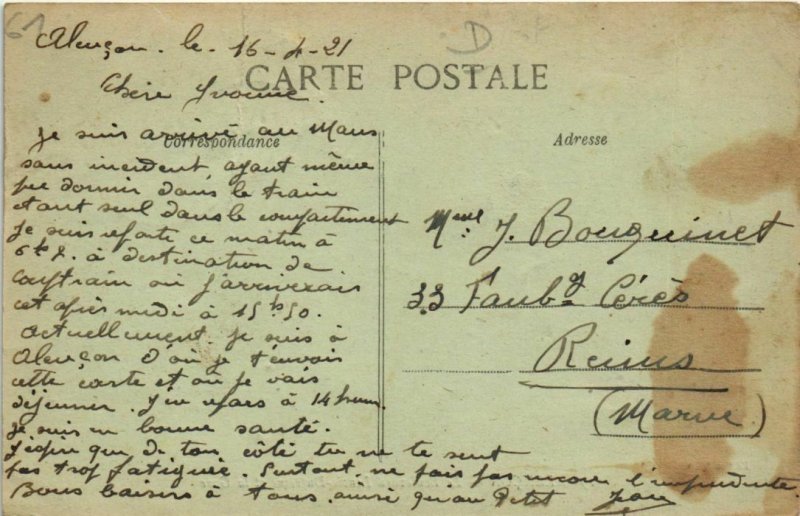 61
D
Alençon. le 16-4-21
CARTE POSTALE
Chère Yvonne.
Correspondance
Adresse
je suis arrivé au Mans
sans incident, ayant même
pu dormir dans le train
étant seul dans le compartiment
Je suis reparti ce matin à
à destination de
où j'arriverais
cet après midi à 15h50.
Actuellement je suis à
Alençon d'où je t'envois
cette carte et où je vais
déjeuner. J'en repars à 14 heures.
je suis en bonne santé.
J'espère que de ton côté tu ne te sent
pas trop fatiguée. Surtout ne fais pas encore l'imprudente.
Bons baisers à tous ainsi qu'au Petit
Mme J. Bouquinet
33 Faubg Cérès
Reims
(Marne)